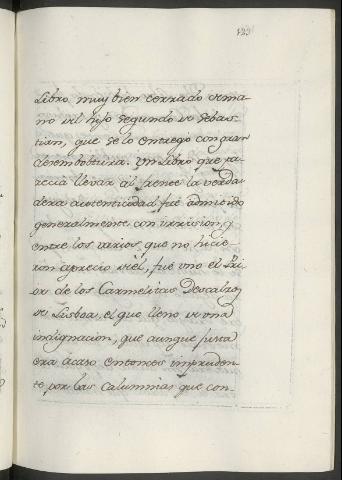 123
Libro muy bien cerrado de ma-
no del hijo segundo de Sebas-
tian, que se lo entregó con gran
desemboltura. Un Libro que pa-
recia llevar al frente la verda-
dera autenticidad fué admitido
generalmente con irrision, y
entre los varios, que no hicie-
ron aprecio de el, fue uno el Pri-
or de los Carmelitas Descalzos
de Lisboa, el que lleno de una
indignacion, que aunque justa
era acaso entonces impruden-
te por las calumnias que con-